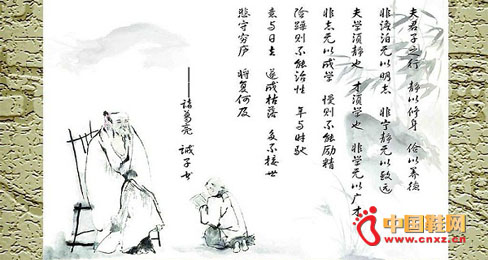 夫君子之行 静以修身 俭以养德
非淡泊无以明志 非宁静无以致远
夫学须静也 才须学也 非学无以广才
非志无以成学 慢则不能励精
险躁则不能治性 年与时驰
意与日去 遂成枯落 多不接世
悲守穷庐 将复何及
——诸葛亮 诫子书
中国鞋网
www.cnxz.cn